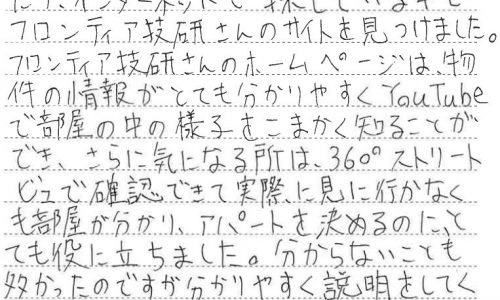 インターネットで探していますと
フロンティア技研さんのサイトを見つけました。
フロンティア技研さんのホームページは、物
件の情報がとても分かりやすくYouTube
で部屋の中の様子をこまかく知ることが
でき、さらに気になる所は、360°ストリート
ビュで確認できて実際に見に行かなく
も部屋が分かり、アパートを決めるのに、と
ても役に立ちました。分からないことも
多かったのですが分かりやすく説明をしてく